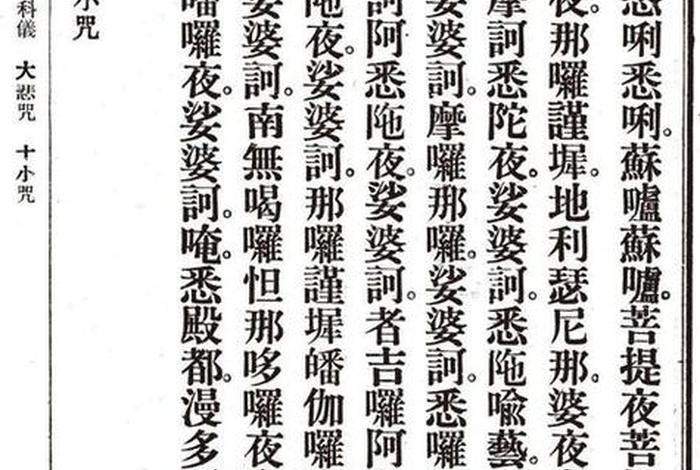 悉唎悉唎。蘇嚧蘇嚧。菩提夜菩
夜。那囉謹墀。地利瑟尼那。婆夜
摩訶悉陀夜。娑婆訶。悉陁喻藝。
娑婆訶。摩囉那囉。娑婆訶。悉囉
訶阿悉陁夜。娑婆訶。者吉囉阿
陁夜。娑婆訶。那囉謹墀皤伽囉
娑婆訶。南無喝囉怛那哆囉夜
皤囉夜。娑婆訶。唵。悉殿都。漫多
小咒
科儀 大悲咒 十小咒